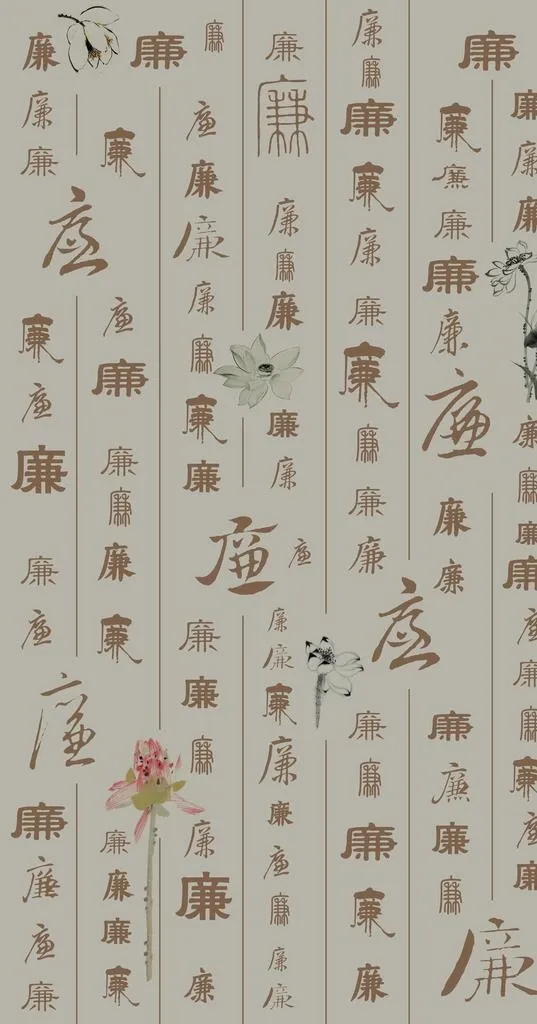 廉廉廉廉廉廉廉廉廉廉廉廉廉
廉廉廉廉廉廉廉廉廉廉廉廉廉廉
廉廉廉廉廉廉廉廉廉廉廉廉廉廉廉廉
廉廉廉廉廉廉廉廉廉廉廉廉廉廉廉廉廉
廉廉廉廉廉廉廉廉廉廉廉廉廉廉廉
廉廉廉廉廉廉廉廉廉廉廉廉
廉廉廉廉廉廉廉廉廉廉廉廉廉廉